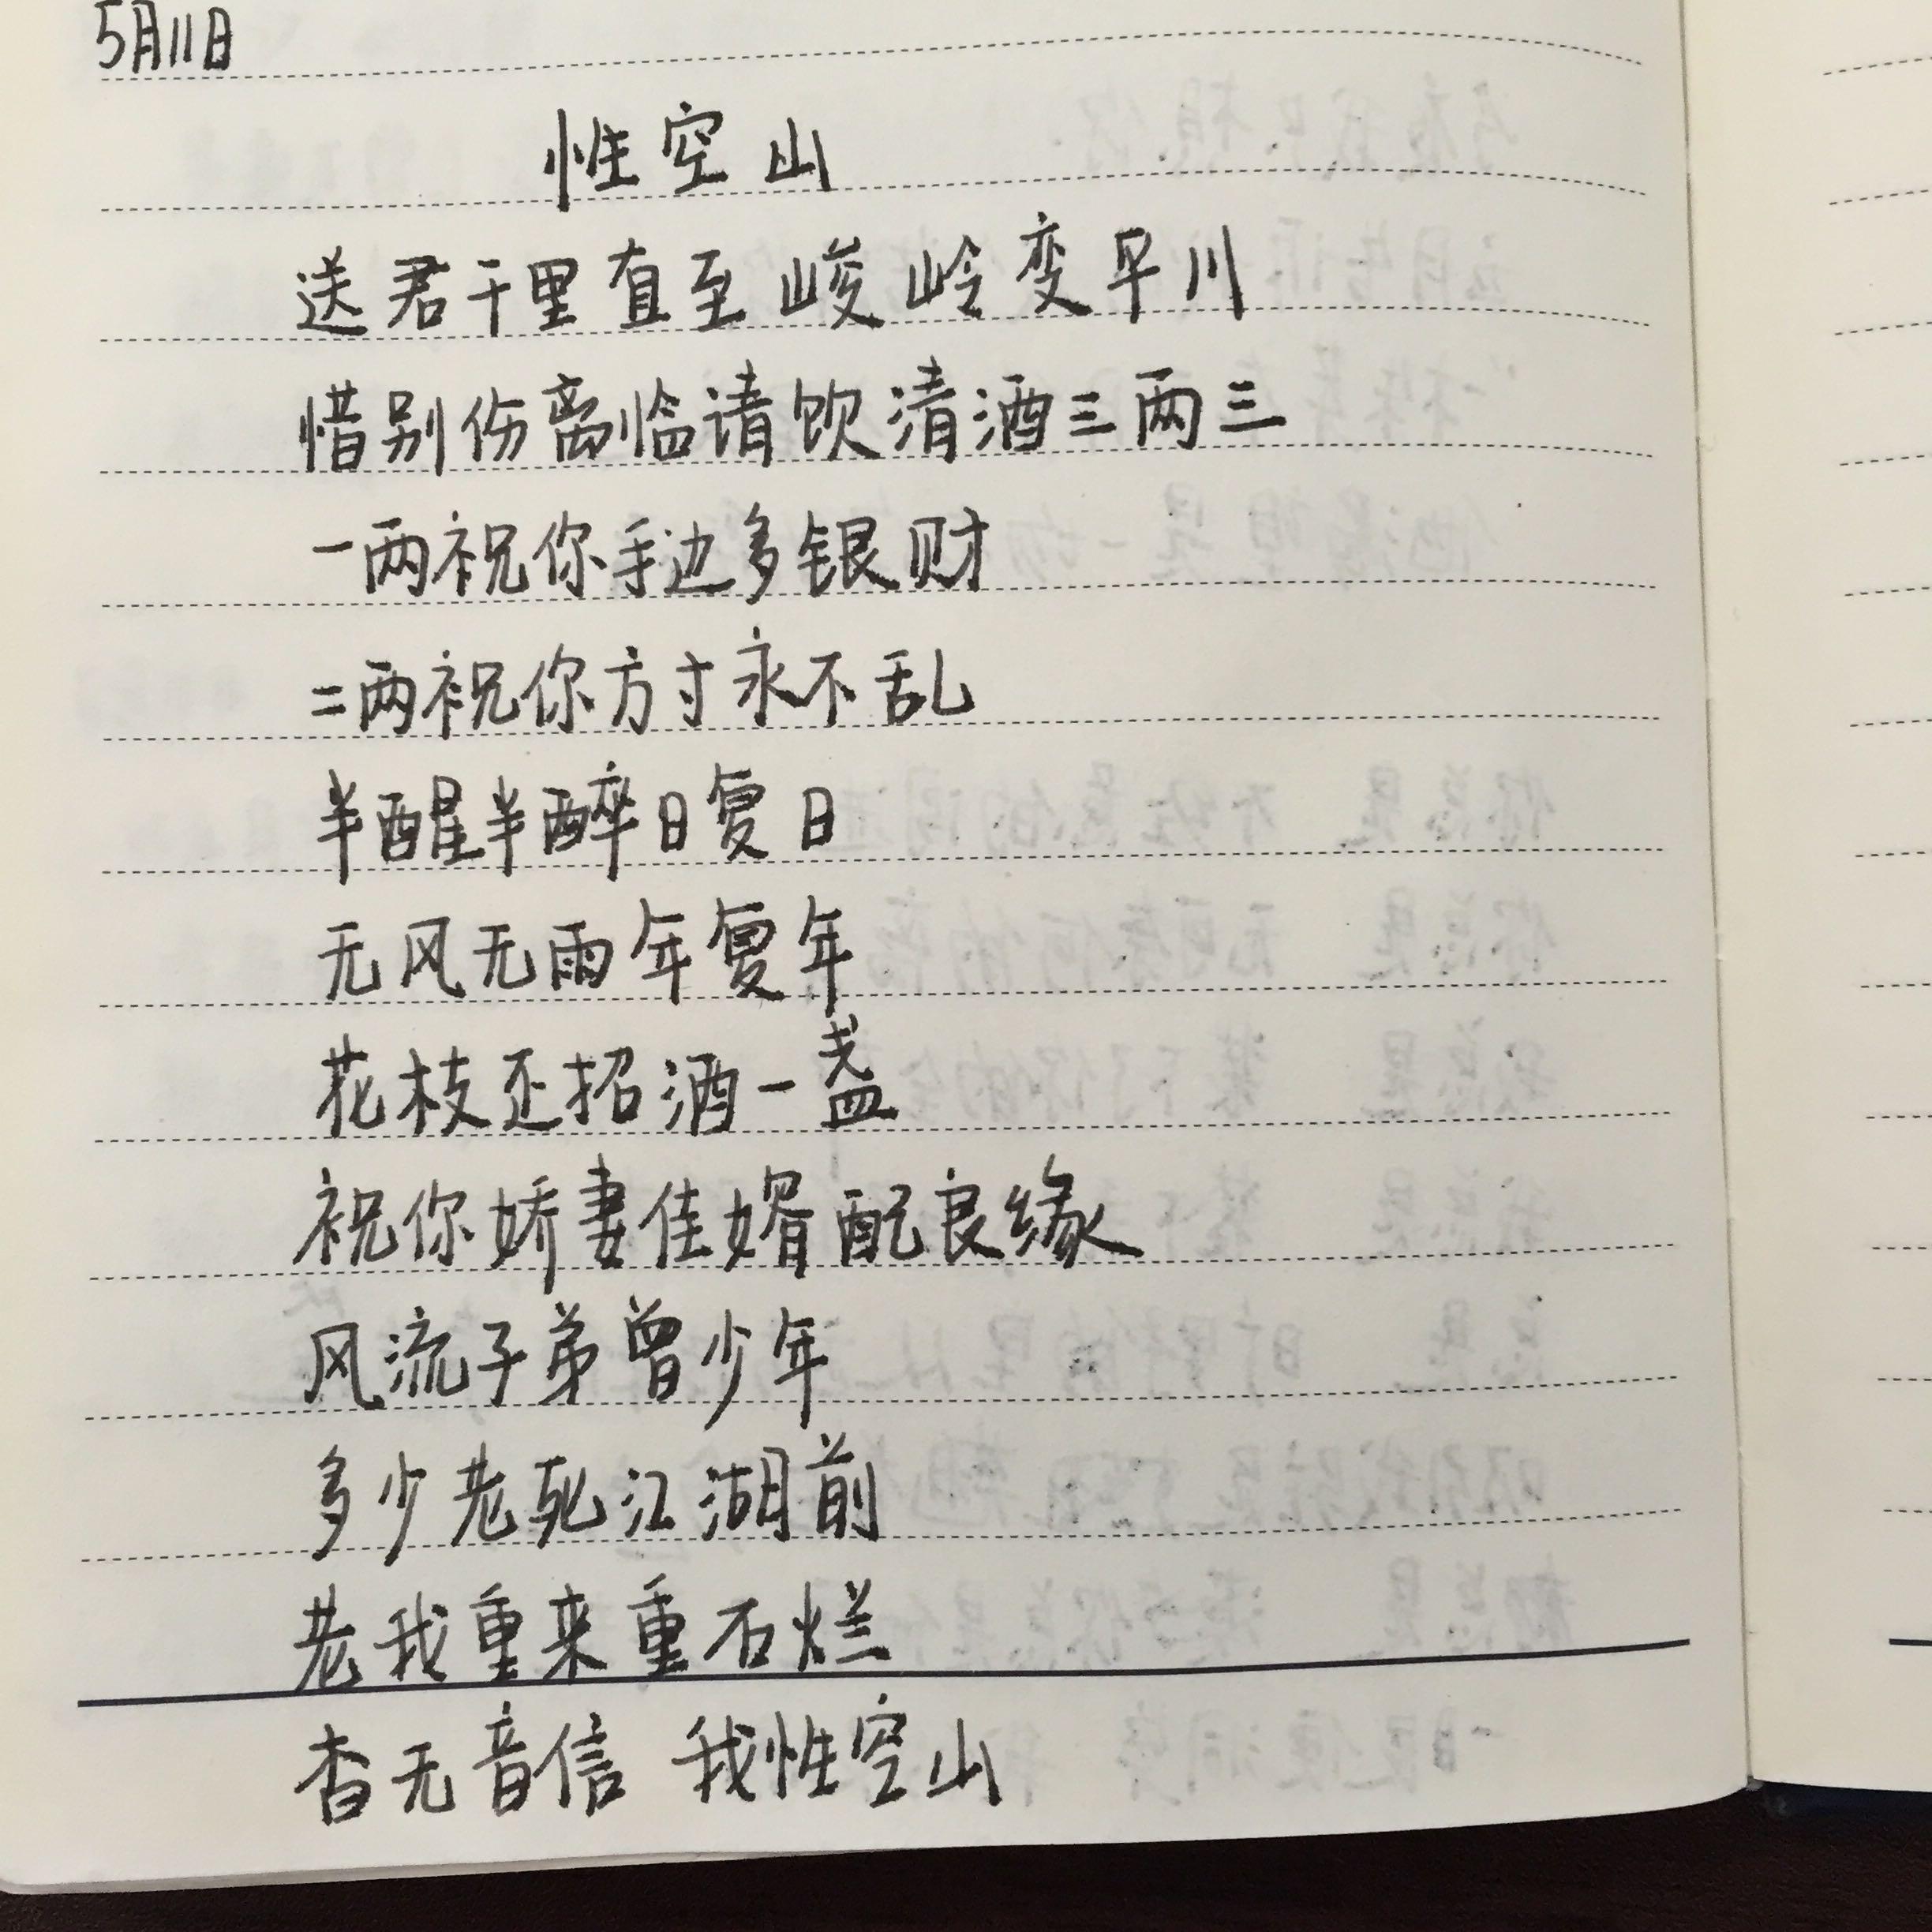 5月11日
性空山
送君千里直至峻岭变平川
惜别伤离临请饮清酒三两三
一两祝你手边多银财
二两祝你方寸永不乱
半醒半醉日复日
无风无雨年复年
花枝还招酒一盏
祝你娇妻佳婿配良缘
风流子弟曾少年
多少老死江湖前
老我重来重石烂
杳无音信 我性空山